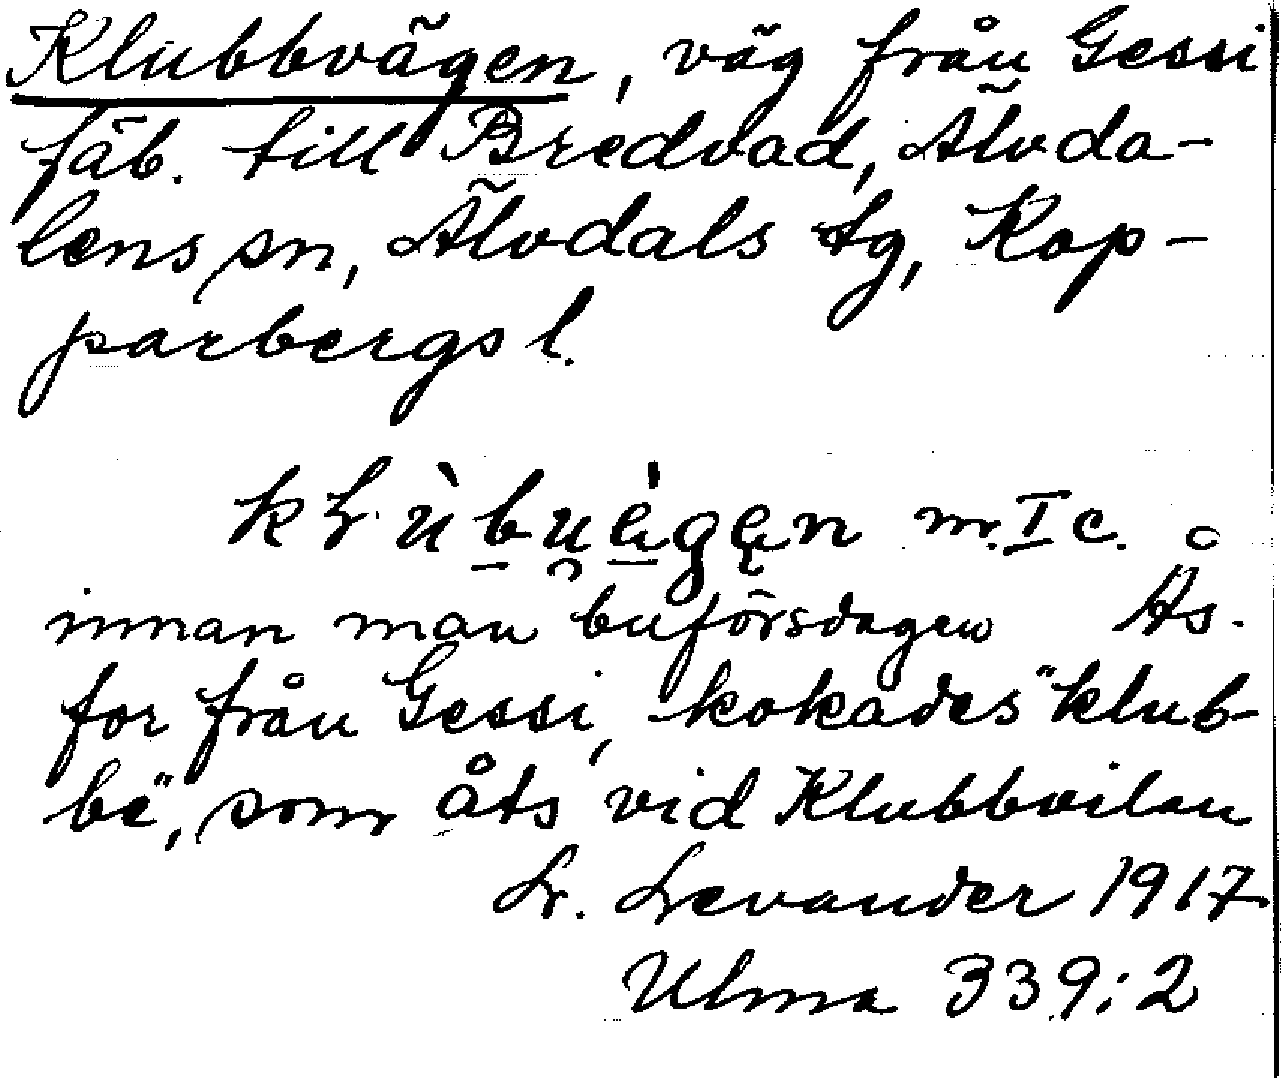 Klubbvägen, väg från Gessi
fäb. till Bredvad, Älvda-
lens sn, Älvdals tg, Kop-
parbergs l.
m. I c.
innan man buförsdagen Ås.
for från Gessi, kokades "klub-
be", som åts vid Klubbvilan
L. Levander 1917
Ulma 339:2